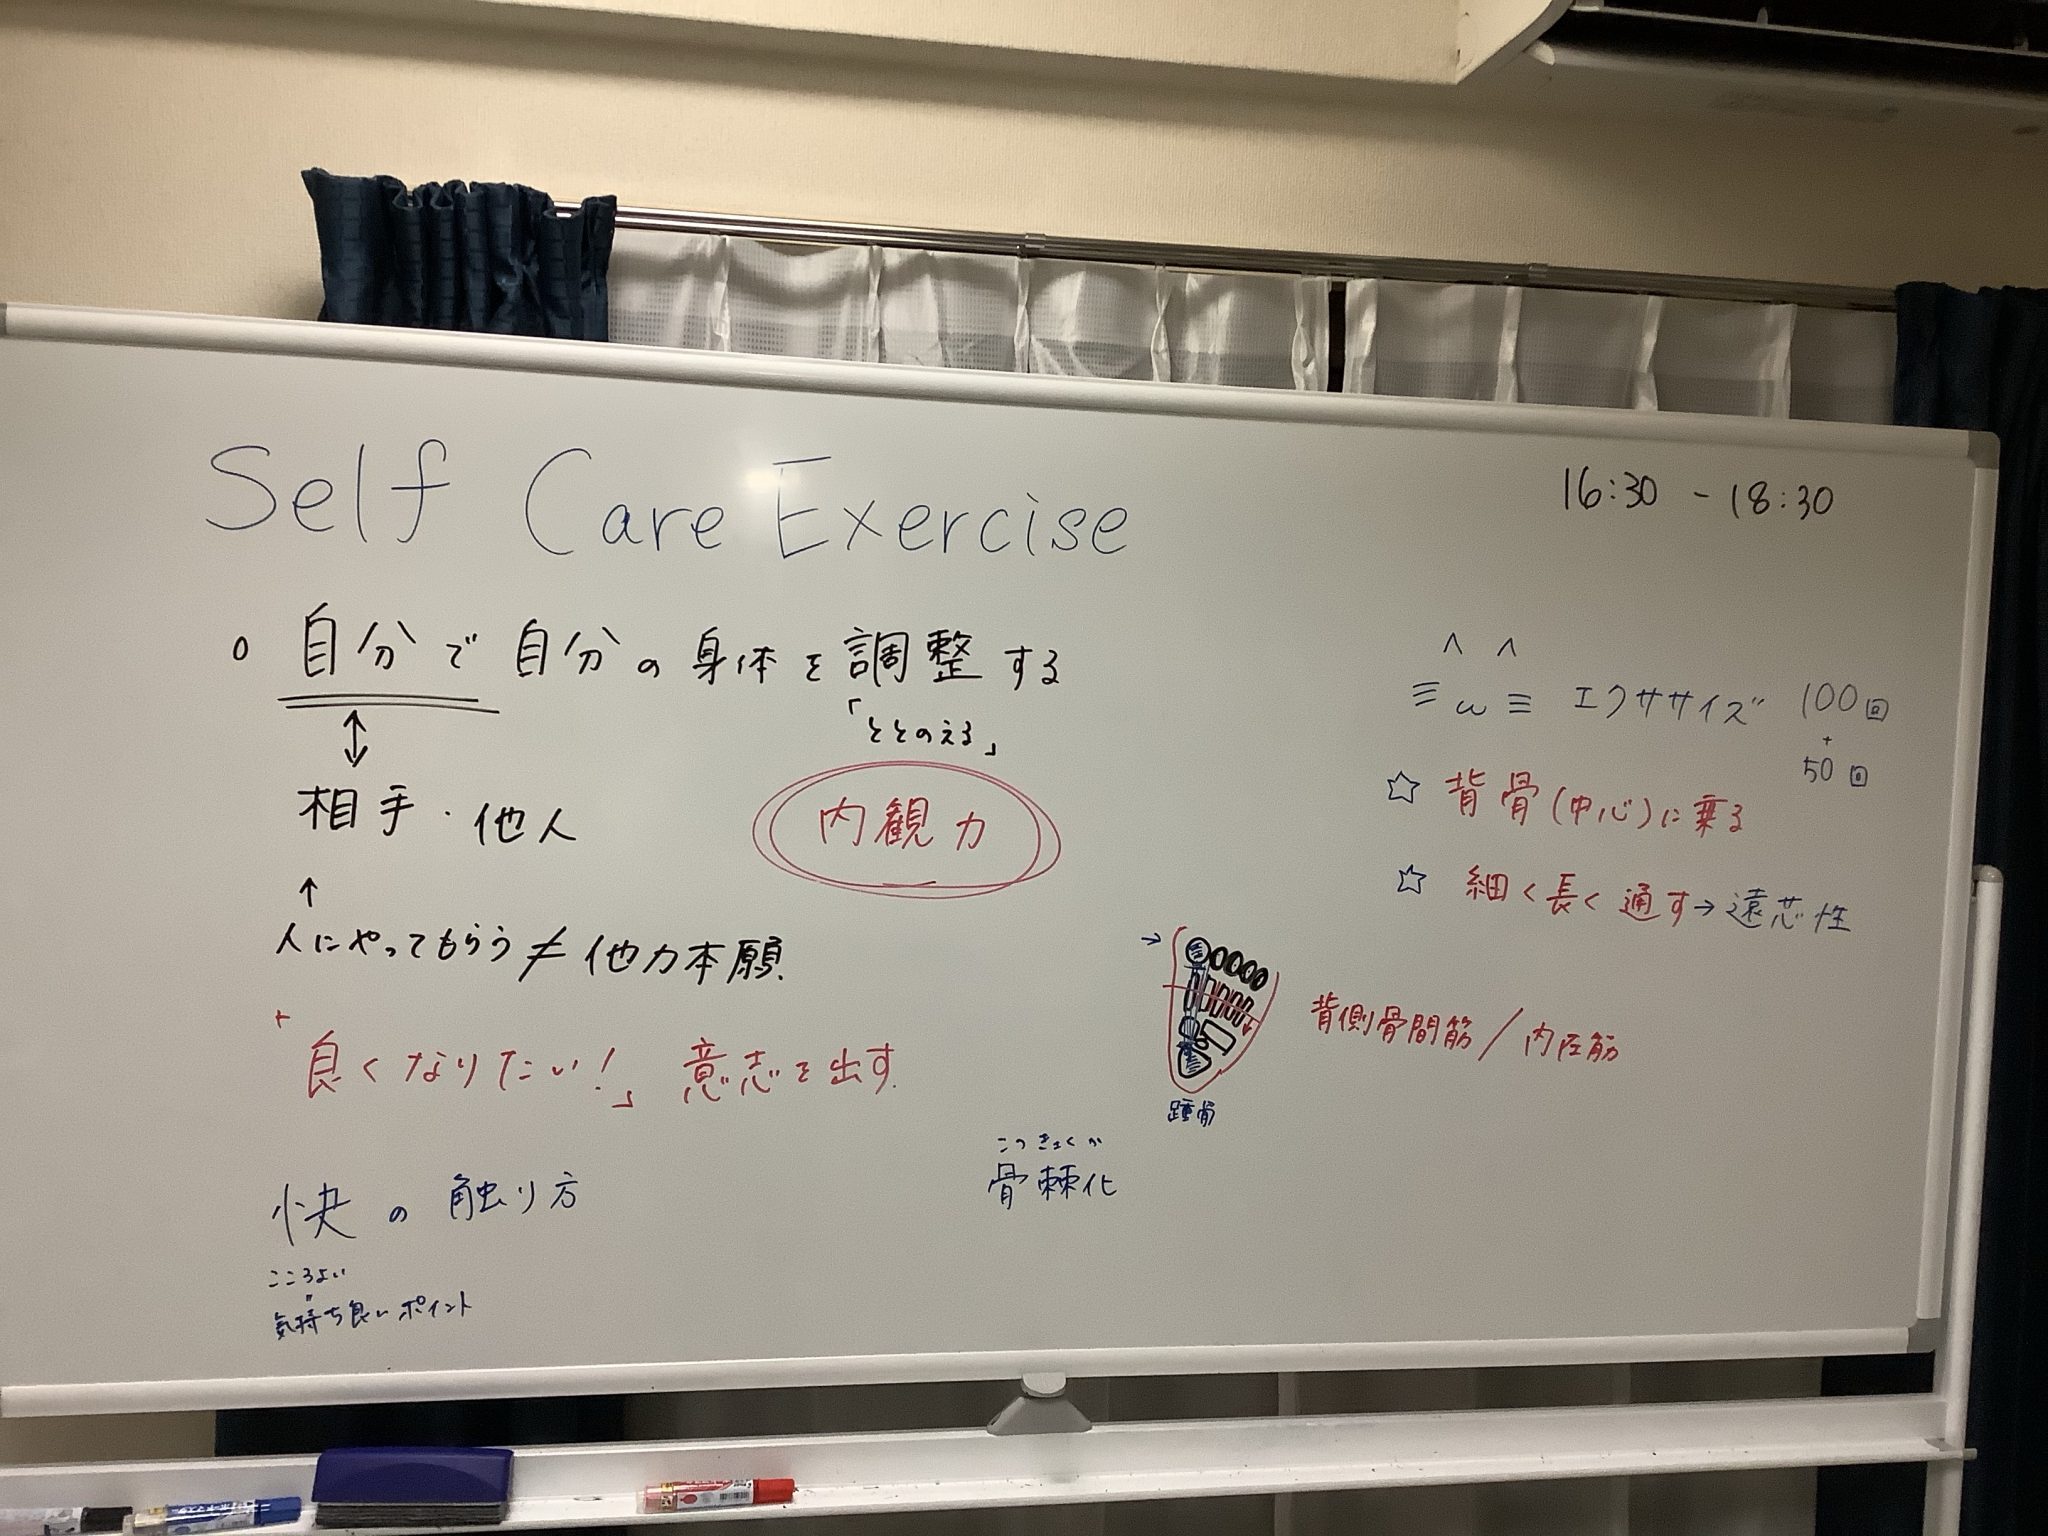 Self Care Exercise
16:30 - 18:30
○ 自分で自分の身体を調整する
「ととのえる」
↕
相手・他人
内観力
↑
人にやってもらう ≠ 他力本願
+
「良くなりたい!」意志を出す
快の触り方
こころよい
〃
気持ち良いポイント
^ ^
≡ ω ≡ エクササイズ 100回
+
50回
☆ 背骨(中心)に乗る
☆ 細く長く通す→遠芯性
→
背側骨間筋/内在筋
踵骨
こつきょくか
骨棘化